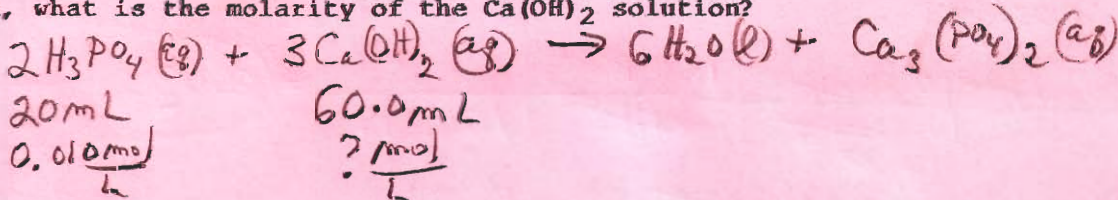 , what is the molarity of the Ca(OH)2 solution?
2 H3PO4 (aq) + 3 Ca(OH)2 (aq) → 6 H2O(l) + Ca3(PO4)2 (aq)
20 mL 60.0 mL
0.010 mol/L ? mol/L